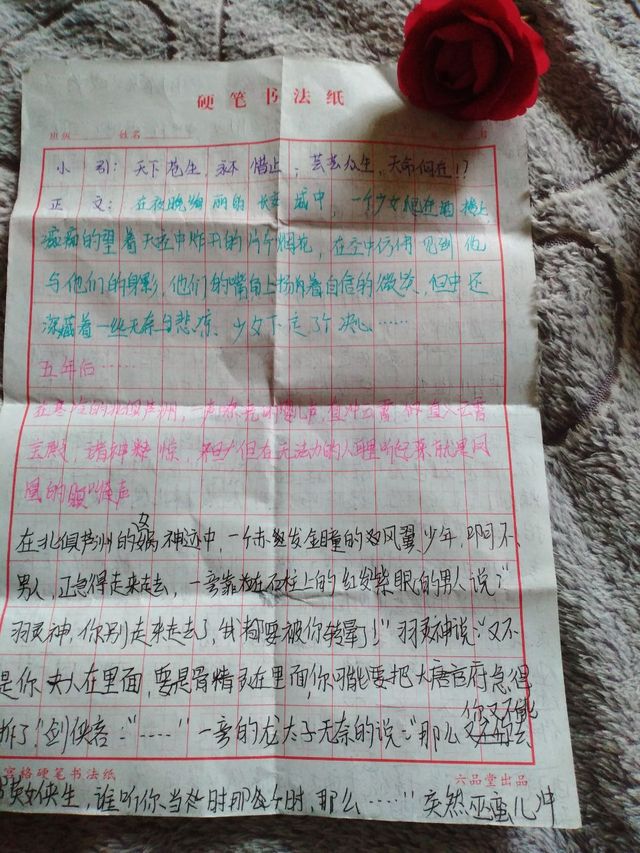 硬笔书法纸
班级 姓名
小引：天下苍生，永不惜止；芸芸众生，天命何在！？
正文：在夜晚绚丽的长安城中，一个少女倚在酒楼上
痴痴的望着天空中炸开的片片烟花，在空中仿佛见到他
与他们的身影，他们的嘴角上扬着自信的微笑，但中还
深藏着一丝无奈与悲凉。少女下定了个决心……
五年后……
在寒冷的北俱芦洲，一声嘹亮的婴儿声，直冲云霄
宝殿，诸神 惊，但在无法力的人 听起来就是凤
凰的 声
在北俱芦洲的女娲神迹中，一个赤红发金瞳的双风翼少年，啊不、
男人，正急得走来走去，一旁靠在石柱上的红发紫眼的男人说：“
羽灵神，你别走来走去了，我都要被你转晕了！”羽灵神说：“又不
是你夫人在里面，要是骨精灵在里面，你可能要把大唐官府急得
拆了”剑侠客：“……”一旁的龙太子无奈的说：“那么 你又不能
宫格硬笔书法纸
六品堂出品
英女侠生，谁听你 当初时那 时，那么……”突然巫蛮儿冲